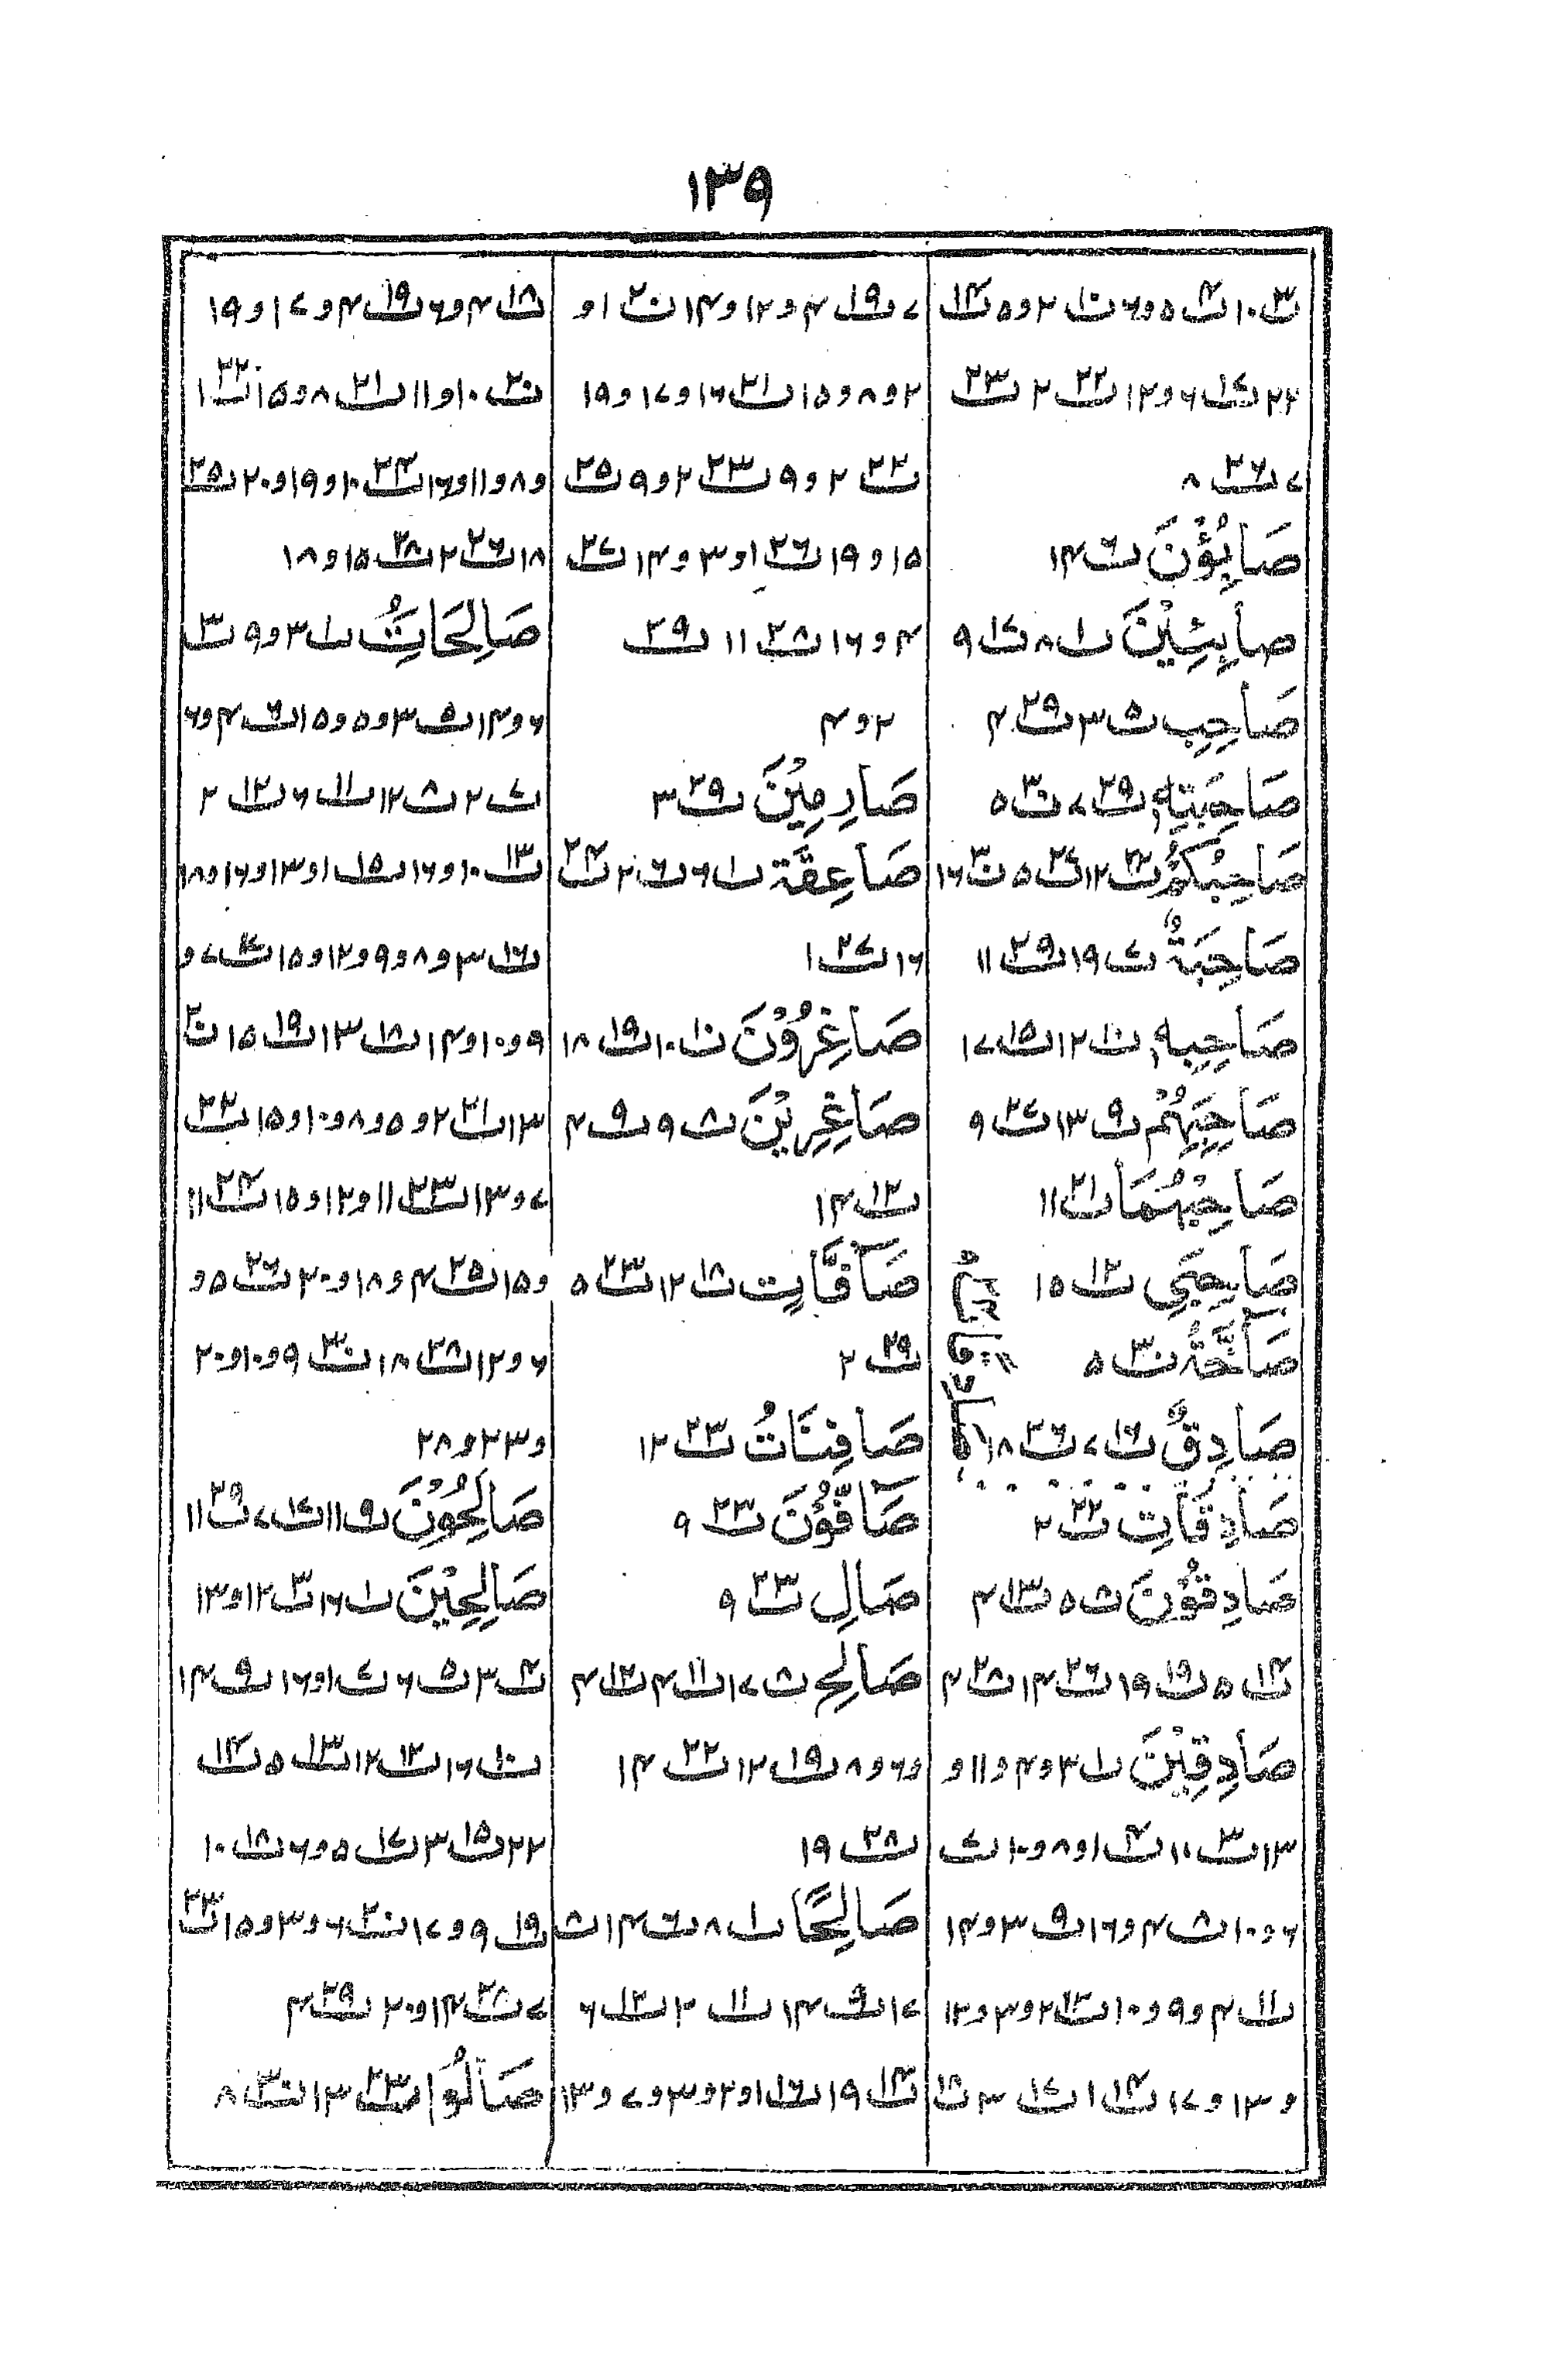 ۱۳۹
ت۳ ۱۰ ت۴ ۵ و ۶ ت۱۰ ۲ و ۵ ت۱۴
۲۲ ت۱۷ ۶ و ۱۲ ت۲۲ ۲ ت۲۳
۷ ت۲۶ ۸
صَابِئُوْنَ ت۶ ۱۴
صابِئِيْنَ ت۱ ۸ ت۱۷ ۹
صَاحِبِ ت۵ ۳ ت۲۹ ۴
صَاحِبَتِهٖ ت۲۹ ۷ ت۳۰ ۵
صَاحِبُكُمْ ت۲۲ ۱۲ ت۲۷ ۵ ت۳۰ ۱۶
صَاحِبَةٌ ت۷ ۱۹ ت۲۹ ۱۱
صَاحِبِهٖ ت۱۰ ۱۲ ت۱۵ ۱۷
صَاحِبَهُمْ ت۹ ۱۳ ت۲۷ ۹
صَاحِبْهُمَا ت۲۱ ۱۱
صَاحِبَيِ ت۱۲ ۱۵
صَآخَّةُ ت۳۰ ۵
صَادِقٌ ت۱۶ ۷ ت۲۶ ۱۸
صَادِقَاتِ ت۲۲ ۲
صَادِقُوْنَ ت۸ ۵ ت۱۳ ۴
ت۱۴ ۵ ت۱۹ ۱۹ ت۲۶ ۱۴ ت۲۸ ۴
صَادِقِيْنَ ت۱ ۳ و ۴ و ۱۱ و
۱۳ ت۳ ۱۱ ت۴ ۱ و ۸ و ۱۰ ت۷
۶ و ۱۰ ت۸ ۴ و ۱۶ ت۹ ۳ و ۱۴
ت۱۱ ۴ و ۹ و ۱۰ ت۱۲ ۲ و ۳ و ۱۲
و ۱۳ و ۱۷ ت۱۴ ۱ ت۱۷ ۳ ت۱۸
۷ ت۱۹ ۴ و ۱۲ و ۱۴ ت۲۰ ۱ و
۲ و ۸ و ۱۵ ت۲۱ ۱۶ و ۱۷ و ۱۹
ت۲۲ ۲ و ۹ ت۲۳ ۲ و ۹ ت۲۵
۱۵ و ۱۹ ت۲۶ ۱ و ۳ و ۱۴ ت۲۷
۴ و ۱۶ ت۲۸ ۱۱ ت۲۹
۲ و ۴
صَارِمِيْنَ ت۲۹ ۳
صَاعِقَة ت۱ ۶ ت۶ ۲ ت۲۴
۱۶ ت۲۷ ۱
صَاغِرُوْنَ ت۱۰ ۱۰ ت۱۹ ۱۸
صَاغِرِيْنَ ت۸ ۹ ت۹ ۴
ت۱۲ ۱۴
صَآفَّاتٍ ت۱۸ ۱۲ ت۲۳ ۵
ت۲۹ ۲
صَافِنَاتُ ت۲۳ ۱۲
صَآفُّوْنَ ت۲۳ ۹
صَالِ ت۲۳ ۹
صَالِحٍ ت۸ ۱۷ ت۱۱ ۴ ت۱۲ ۴
و ۶ و ۸ ت۱۹ ۱۲ ت۲۲ ۱۴
ت۲۸ ۱۹
صَالِحًا ت۱ ۸ ت۶ ۱۴ ت۸
۱۷ ت۹ ۱۴ ت۱۱ ۲ ت۱۲ ۶
ت۱۴ ۱۹ ت۱۶ ۱ و ۲ و ۳ و ۷ و ۱۳
ت۱۸ ۴ و ۶ ت۱۹ ۴ و ۱۷ و ۱۹
ت۲۰ ۱۰ و ۱۱ ت۲۱ ۸ و ۱۵ ت۲۲ ۱
و ۸ و ۱۱ و ۱۶ ت۲۴ ۱۰ و ۱۹ و ۲۰ ت۲۵
۱۸ ت۲۶ ۲ ت۲۸ ۱۵ و ۱۸
صَالِحَاتُ ت۱ ۳ و ۹ ت۳
۶ و ۱۴ ت۵ ۳ و ۵ و ۱۵ ت۶ ۴ و ۶
ت۷ ۲ ت۸ ۱۲ ت۱۱ ۶ ت۱۲ ۲
ت۱۳ ۱۰ و ۱۶ ت۱۵ ۱ و ۱۳ و ۱۶ و ۱۸
ت۱۶ ۳ و ۸ و ۹ و ۱۲ و ۱۵ ت۱۷ ۷ و
۹ و ۱۰ و ۱۴ ت۱۸ ۱۳ ت۱۹ ۱۵ ت۲۰
۱۳ ت۲۱ ۲ و ۵ و ۸ و ۱۰ و ۱۵ ت۲۲
۷ و ۱۳ ت۲۳ ۱۱ و ۱۲ و ۱۵ ت۲۴ ۱۱
و ۱۵ ت۲۵ ۴ و ۱۸ و ۲۰ ت۲۶ ۵ و
۶ و ۱۲ ت۲۸ ۱۸ ت۳۰ ۹ و ۱۰ و ۲۰
و ۲۳ و ۲۸
صَالِحُوْنَ ت۹ ۱۱ ت۱۷ ۷ ت۲۹ ۱۱
صَالِحِيْنَ ت۱ ۱۶ ت۳ ۱۲ و ۱۳
ت۴ ۳ ت۵ ۶ ت۷ ۱ و ۱۶ ت۹ ۱۴
ت۱۰ ۱۶ ت۱۲ ۱۲ ت۱۳ ۵ ت۱۴
۲۲ ت۱۵ ۳ ت۱۷ ۵ و ۶ ت۱۸ ۱۰
ت۱۹ ۹ و ۱۷ ت۲۰ ۶ و ۳ و ۱۵ ت۲۳
۷ ت۲۸ ۱۴ و ۲۰ ت۲۹ ۴
صَالُوا ت۲۳ ۱۳ ت۳۰ ۸